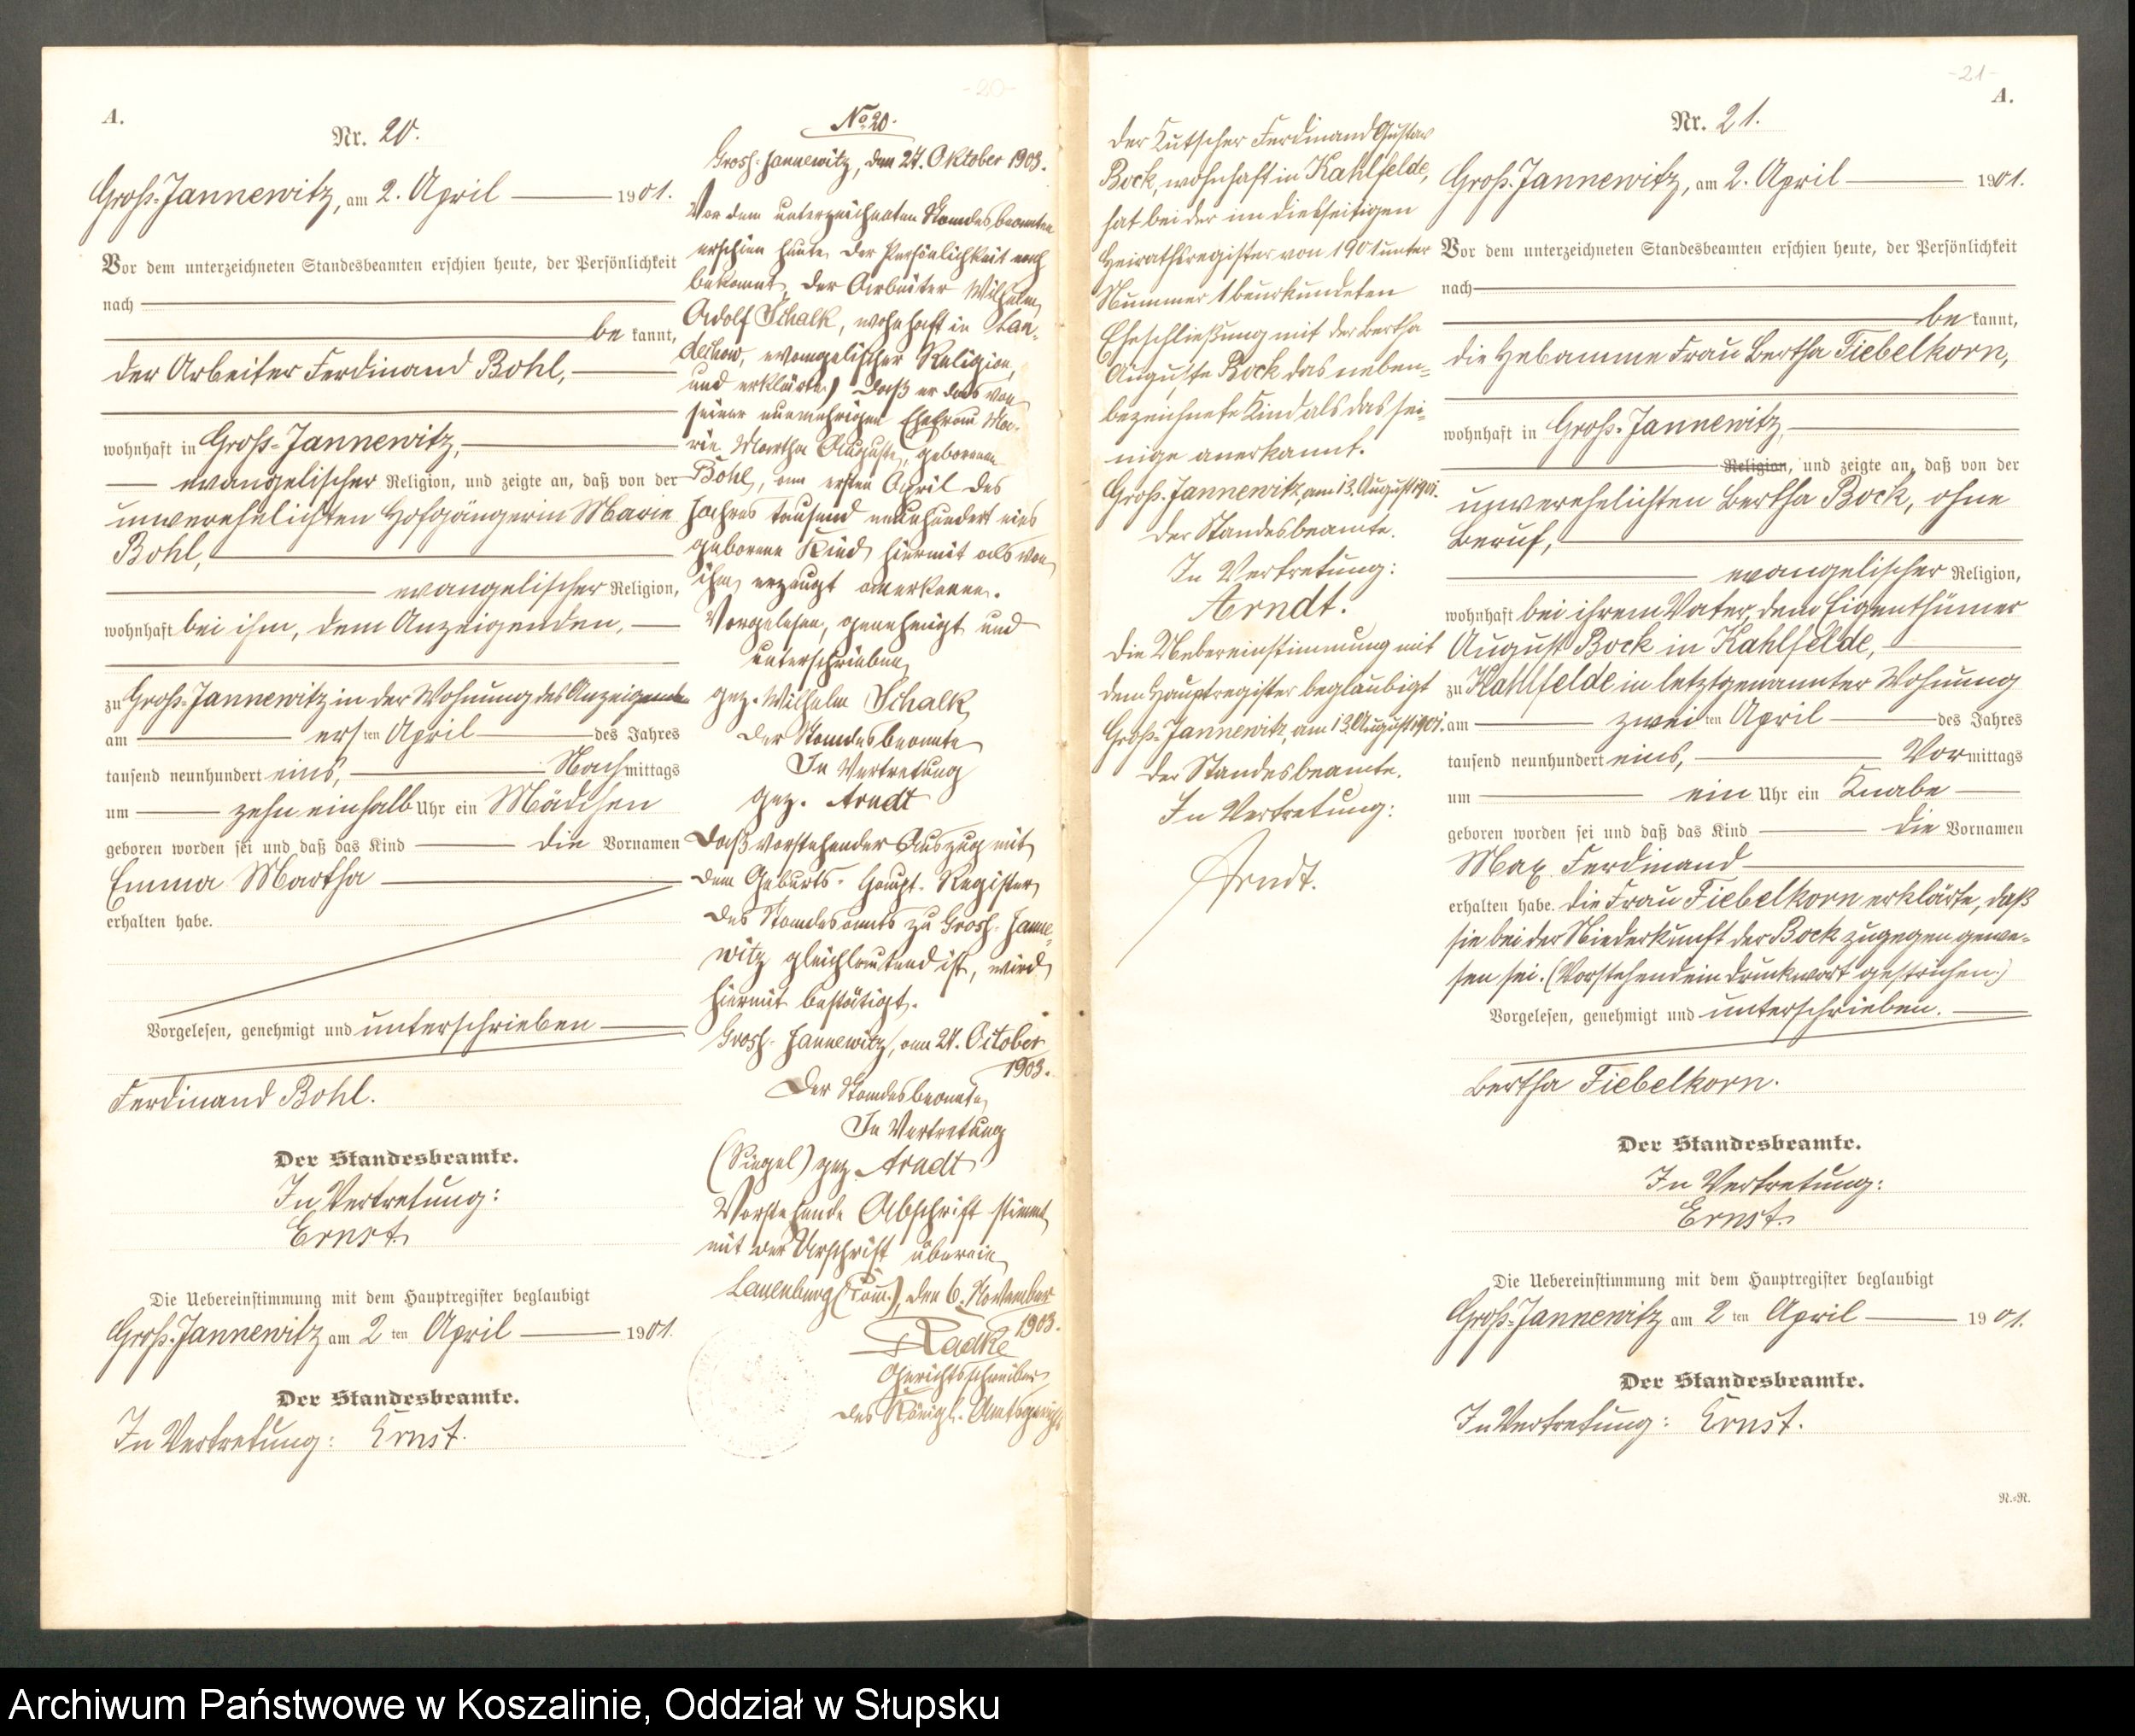 -20-
A.
Nr. 20.
Groß-Jannewitz, am 2. April 1901.
Vor dem unterzeichneten Standesbeamten erschien heute, der Persönlichkeit
nach
be kannt,
der Arbeiter Ferdinand Bohl,
wohnhaft in Groß-Jannewitz,
evangelischer Religion, und zeigte an, daß von der
unverehelichten Hofgängerin Marie
Bohl,
evangelischer Religion,
wohnhaft bei ihm, dem Anzeigenden,
zu Groß-Jannewitz in der Wohnung des Anzeigenden
am ersten April des Jahres
tausend neunhundert eins, Nachmittags
um zehn einhalb Uhr ein Mädchen
geboren worden sei und daß das Kind die Vornamen
Emma Martha
erhalten habe.
Vorgelesen, genehmigt und unterschrieben
Ferdinand Bohl.
Der Standesbeamte.
In Vertretung:
Ernst.
Die Uebereinstimmung mit dem Hauptregister beglaubigt
Groß-Jannewitz am 2 ten April 1901.
Der Standesbeamte.
In Vertretung: Ernst.
No 20.
Gross-Jannewitz, den 24. Oktober 1903.
Vor dem unterzeichneten Standesbeamten
erschien heute, der Persönlichkeit nach
bekannt, der Arbeiter Wilhelm
Adolf Schalk, wohnhaft in Lan-
dechow, evangelischer Religion,
und erklärte, daß er das von
seiner nunmehrigen Ehefrau Ma-
rie Martha Auguste, geborenen
Bohl, am ersten April des
Jahres tausend neunhundert eins
geborene Kind hiermit als von
ihm erzeugt anerkenne.
Vorgelesen, genehmigt und
unterschrieben
gez. Wilhelm Schalk
Der Standesbeamte
In Vertretung
gez. Arndt
Daß vorstehender Auszug mit
dem Geburts-Haupt-Register
des Standesamts zu Gross-Janne-
witz gleichlautend ist, wird
hiermit bestätigt.
Gross-Jannewitz, am 24. October
1903.
Der Standesbeamte
In Vertretung
(Siegel) gez. Arndt
Vorstehende Abschrift stimmt
mit der Urschrift überein
Lauenburg (Pom.), den 6. November
1903.
Radke
Gerichtsschreiber
des Königl. Amtsgerichts
-21-
A.
der Kutscher Ferdinand Gustav
Bock, wohnhaft in Kahlfelde,
hat bei der im diesseitigen
Heirathsregister von 1901 unter
Nummer 1 beurkundeten
Eheschließung mit der Bertha
Auguste Bock das neben-
bezeichnete Kind als das sei-
nige anerkannt.
Groß-Jannewitz, am 13. August 1901.
der Standesbeamte.
In Vertretung:
Arndt.
die Uebereinstimmung mit
dem Hauptregister beglaubigt
Groß-Jannewitz, am 13. August 1901.
der Standesbeamte.
In Vertretung:
Arndt.
Nr. 21.
Groß-Jannewitz, am 2. April 1901.
Vor dem unterzeichneten Standesbeamten erschien heute, der Persönlichkeit
nach
be kannt,
die Hebamme Frau Bertha Fiebelkorn,
wohnhaft in Groß-Jannewitz,
Religion, und zeigte an, daß von der
unverehelichten Bertha Bock, ohne
Beruf,
evangelischer Religion,
wohnhaft bei ihrem Vater, dem Eigenthümer
August Bock in Kahlfelde,
zu Kahlfelde in letztgenannter Wohnung
am zwei ten April des Jahres
tausend neunhundert eins, Vormittags
um ein Uhr ein Knabe
geboren worden sei und daß das Kind die Vornamen
Max Ferdinand
erhalten habe. die Frau Fiebelkorn erklärte, daß
sie bei der Niederkunft der Bock zugegen gewe-
sen sei. (Vorstehend ein Druckwort gestrichen.)
Vorgelesen, genehmigt und unterschrieben.
Bertha Fiebelkorn.
Der Standesbeamte.
In Vertretung:
Ernst.
Die Uebereinstimmung mit dem Hauptregister beglaubigt
Groß-Jannewitz am 2 ten April 1901.
Der Standesbeamte.
In Vertretung: Ernst.
R.=R.
Archiwum Państwowe w Koszalinie, Oddział w Słupsku